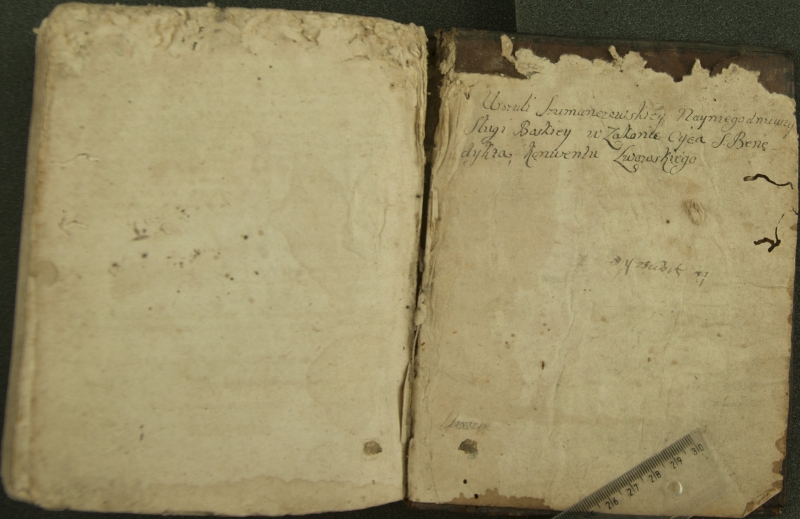 Urszuli Szumanczowskiey Nayniegodnieyszy
Sługi Boskiey w Zakonie Oyca S. Bene
dykta, Konwentu Lwowskiego
26 27 28 29 30